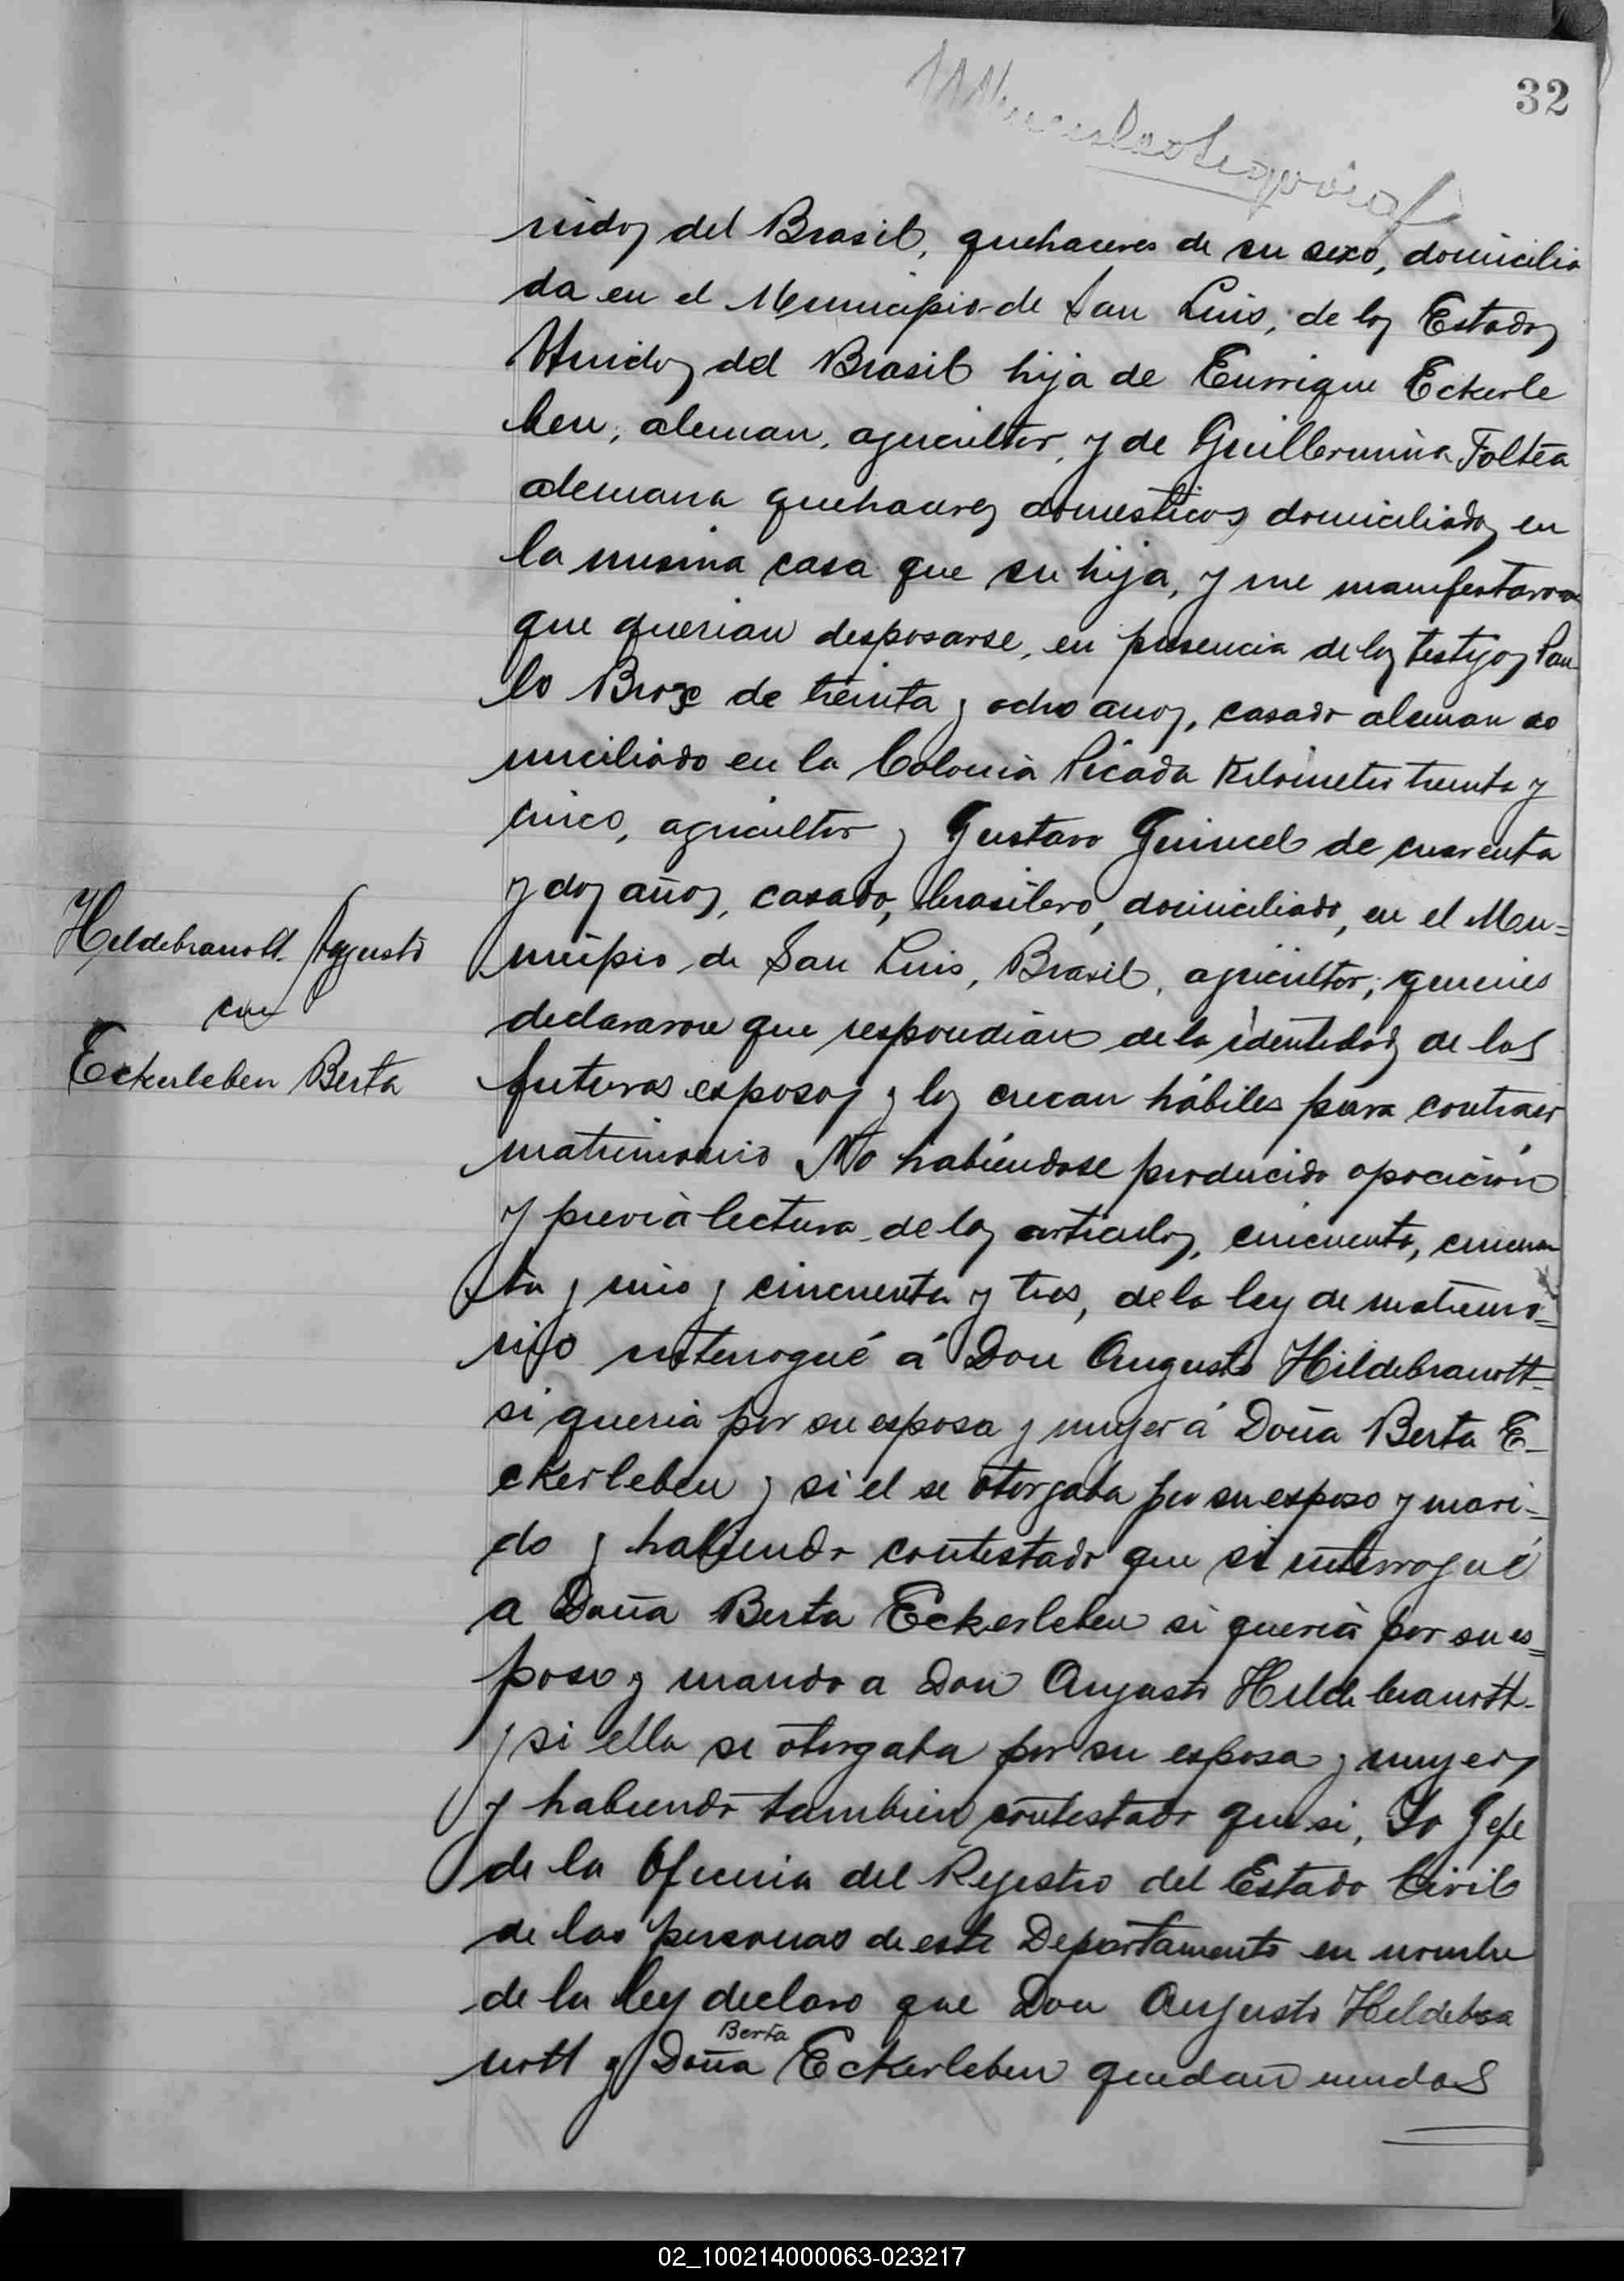 32
nidos del Brasil, quehaceres de su sexo, domicilia
da en el Municipio de San Luis, de los Estados
Unidos del Brasil hija de Enrrique Eckerle
ben, aleman, agricultor, y de Guillermina Foltea
alemana quehaceres domesticos domiciliados en
la misma casa que su hija, y me manifestaron
que querian desposarse, en presencia de los testigos Pau
lo Broze de treinta y ocho anos, casado aleman do
miciliado en la Colonia Picada Kilometro treinta y
cinco, agricultor y Gustavo de cuarenta
y dos años, casado, brasilero, domiciliado, en el Mu=
nicipio de San Luis, Brasil, agricultor; quienes
declararon que respondian de la identidad de los
futuros esposos y los creean hábiles para contraer
matrimonio No habiendose producido oposición
y previa lectura de los articulos, cincuenta, cincuen
ta y uno y cincuenta y tres, de la ley de matrimo=
nio interrogué á Don Augusto Hildebranott=
si queria por su esposa y mujer á Doña Berta E-
ckerleben y si el se otorgaba por su esposo y mari=
do y habiendo contestado que si interrogué
a Doña Berta Eckerleben si queria por su es=
poso y marido a Don Augusto Hildebranott-
y si ella se otorgaba por su esposa y mujer,
y habiendo tambien contestado que si, Yo Gefe
de la Oficina del Registro del Estado Civil
de las personas de este Departamento en nombre
de la ley declaro que Don Augusto Hildebra
Berta
nott y Doña Eckerleben quedan unidos
Hildebranott Augusto
con
Eckerleben Berta
02_100214000063-023217